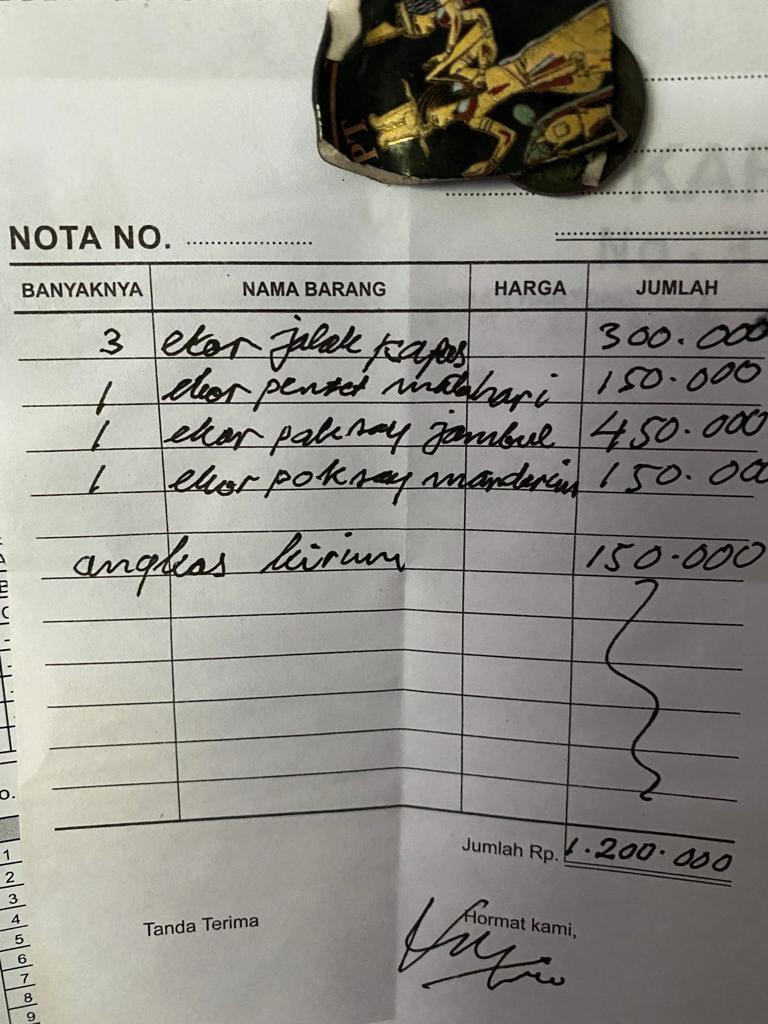 PT
NOTA NO. ....................
BANYAKNYA NAMA BARANG HARGA JUMLAH
3 ekor jalak kapas 300.000
1 ekor pentet matahari 150.000
1 ekor paksay jambul 450.000
1 ekor poksay mandarin 150.000
angkos kirim 150.000
Jumlah Rp. 1.200.000
Tanda Terima Hormat kami,
o.
1
2
3
4
5
6
7
8
9